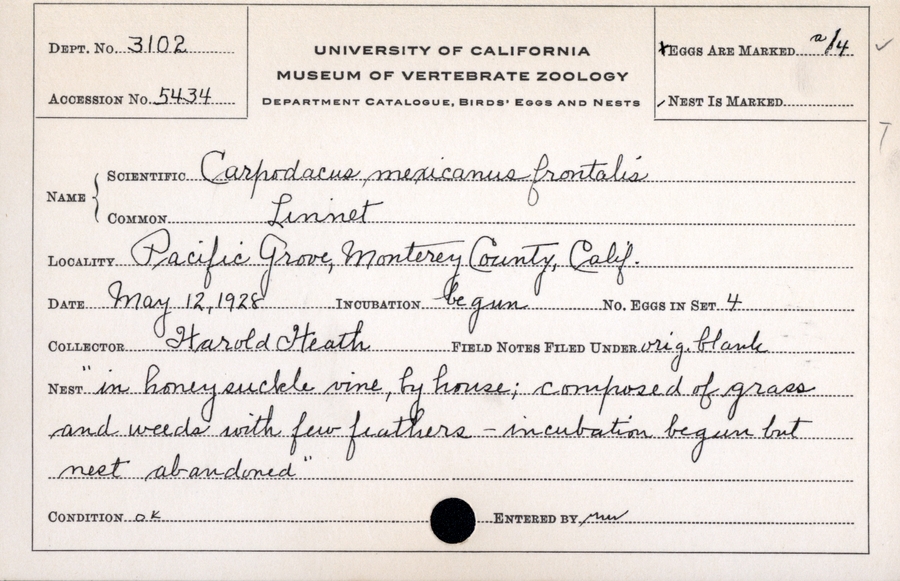 Dept. No. 3102
Accession No. 5434
UNIVERSITY OF CALIFORNIA
MUSEUM OF VERTEBRATE ZOOLOGY
Department Catalogue, Birds' Eggs and Nests
Eggs Are Marked a/4
Nest Is Marked
Name
Scientific Carpodacus mexicanus frontalis
Common Linnet
Locality Pacific Grove, Monterey County, Calif.
Date May 12, 1928 Incubation begun No. Eggs in Set 4
Collector Harold Heath Field Notes Filed Under orig. blank
Nest "in honeysuckle vine, by house; composed of grass
and weeds with few feathers – incubation begun but
nest abandoned"
Condition ok Entered by